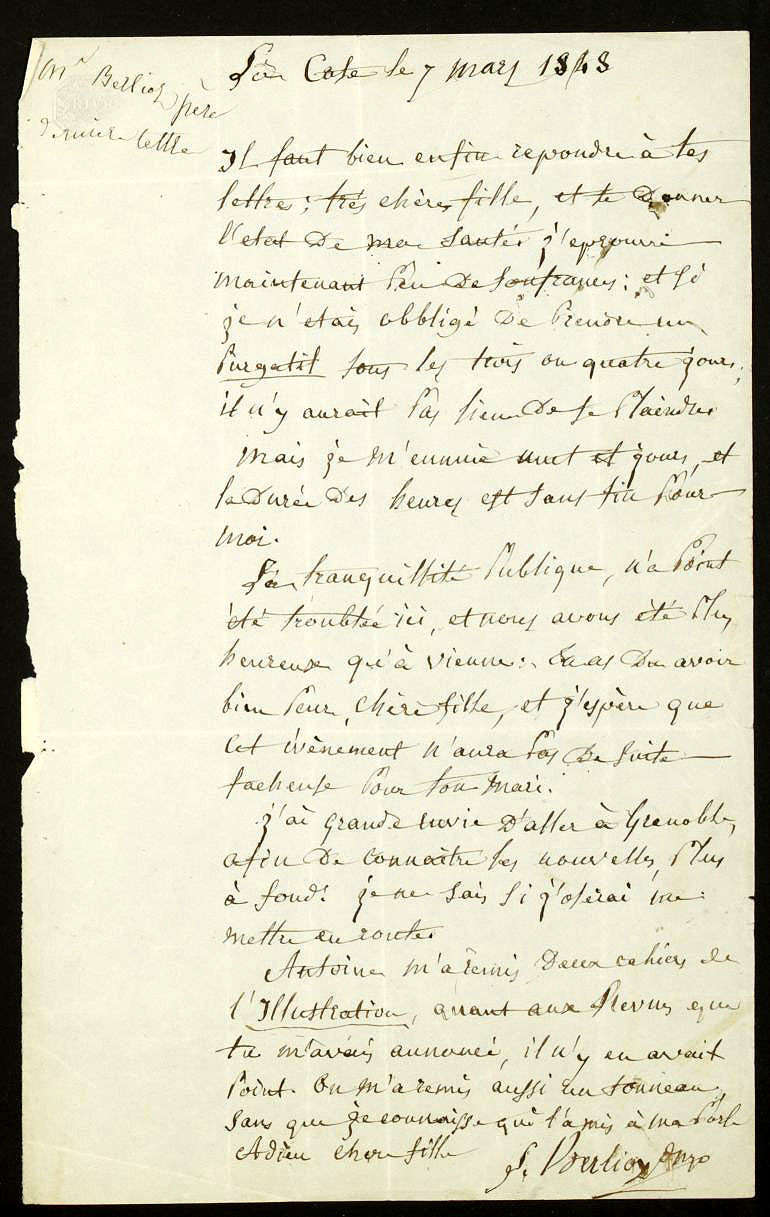 Mr Berlioz père
dernière lettre
La Cote le 7 mars 1848
Il faut bien enfin repondre à tes
lettres, très chère fille, et te donner
l'etat de ma santé. j'eprouve
maintenant peu de soufrances; et si
je n'etais obbligé de prendre un
purgatif tous les trois ou quatre jours,
il n'y aurait pas lieu de se plaindre
mais je m'ennuie nuit et jours, et
la durée des heures est sans fin pour
moi.
La tranquillité publique, n'a point
été troublée ici, et nous avons été plus
heureux qu'à vienne: tu as du avoir
bien peur, chère fille, et j'espère que
cet évènement n'aura pas de suite
facheuse pour ton mari.
j'ai grande envie d'aller à Grenoble,
afin de connaitre les nouvelles, plus
à fond. je ne sais si j'oserai me
mettre en route.
Antoine m'a remis deux cahiers de
l'Illustration, quant aux Revues que
tu m'avais annoncé, il n'y en avait
point. On m'a remis aussi un tonneau,
sans que je connaisse qui l'a mis à ma porte
Adieu chere fille
L. Berlioz